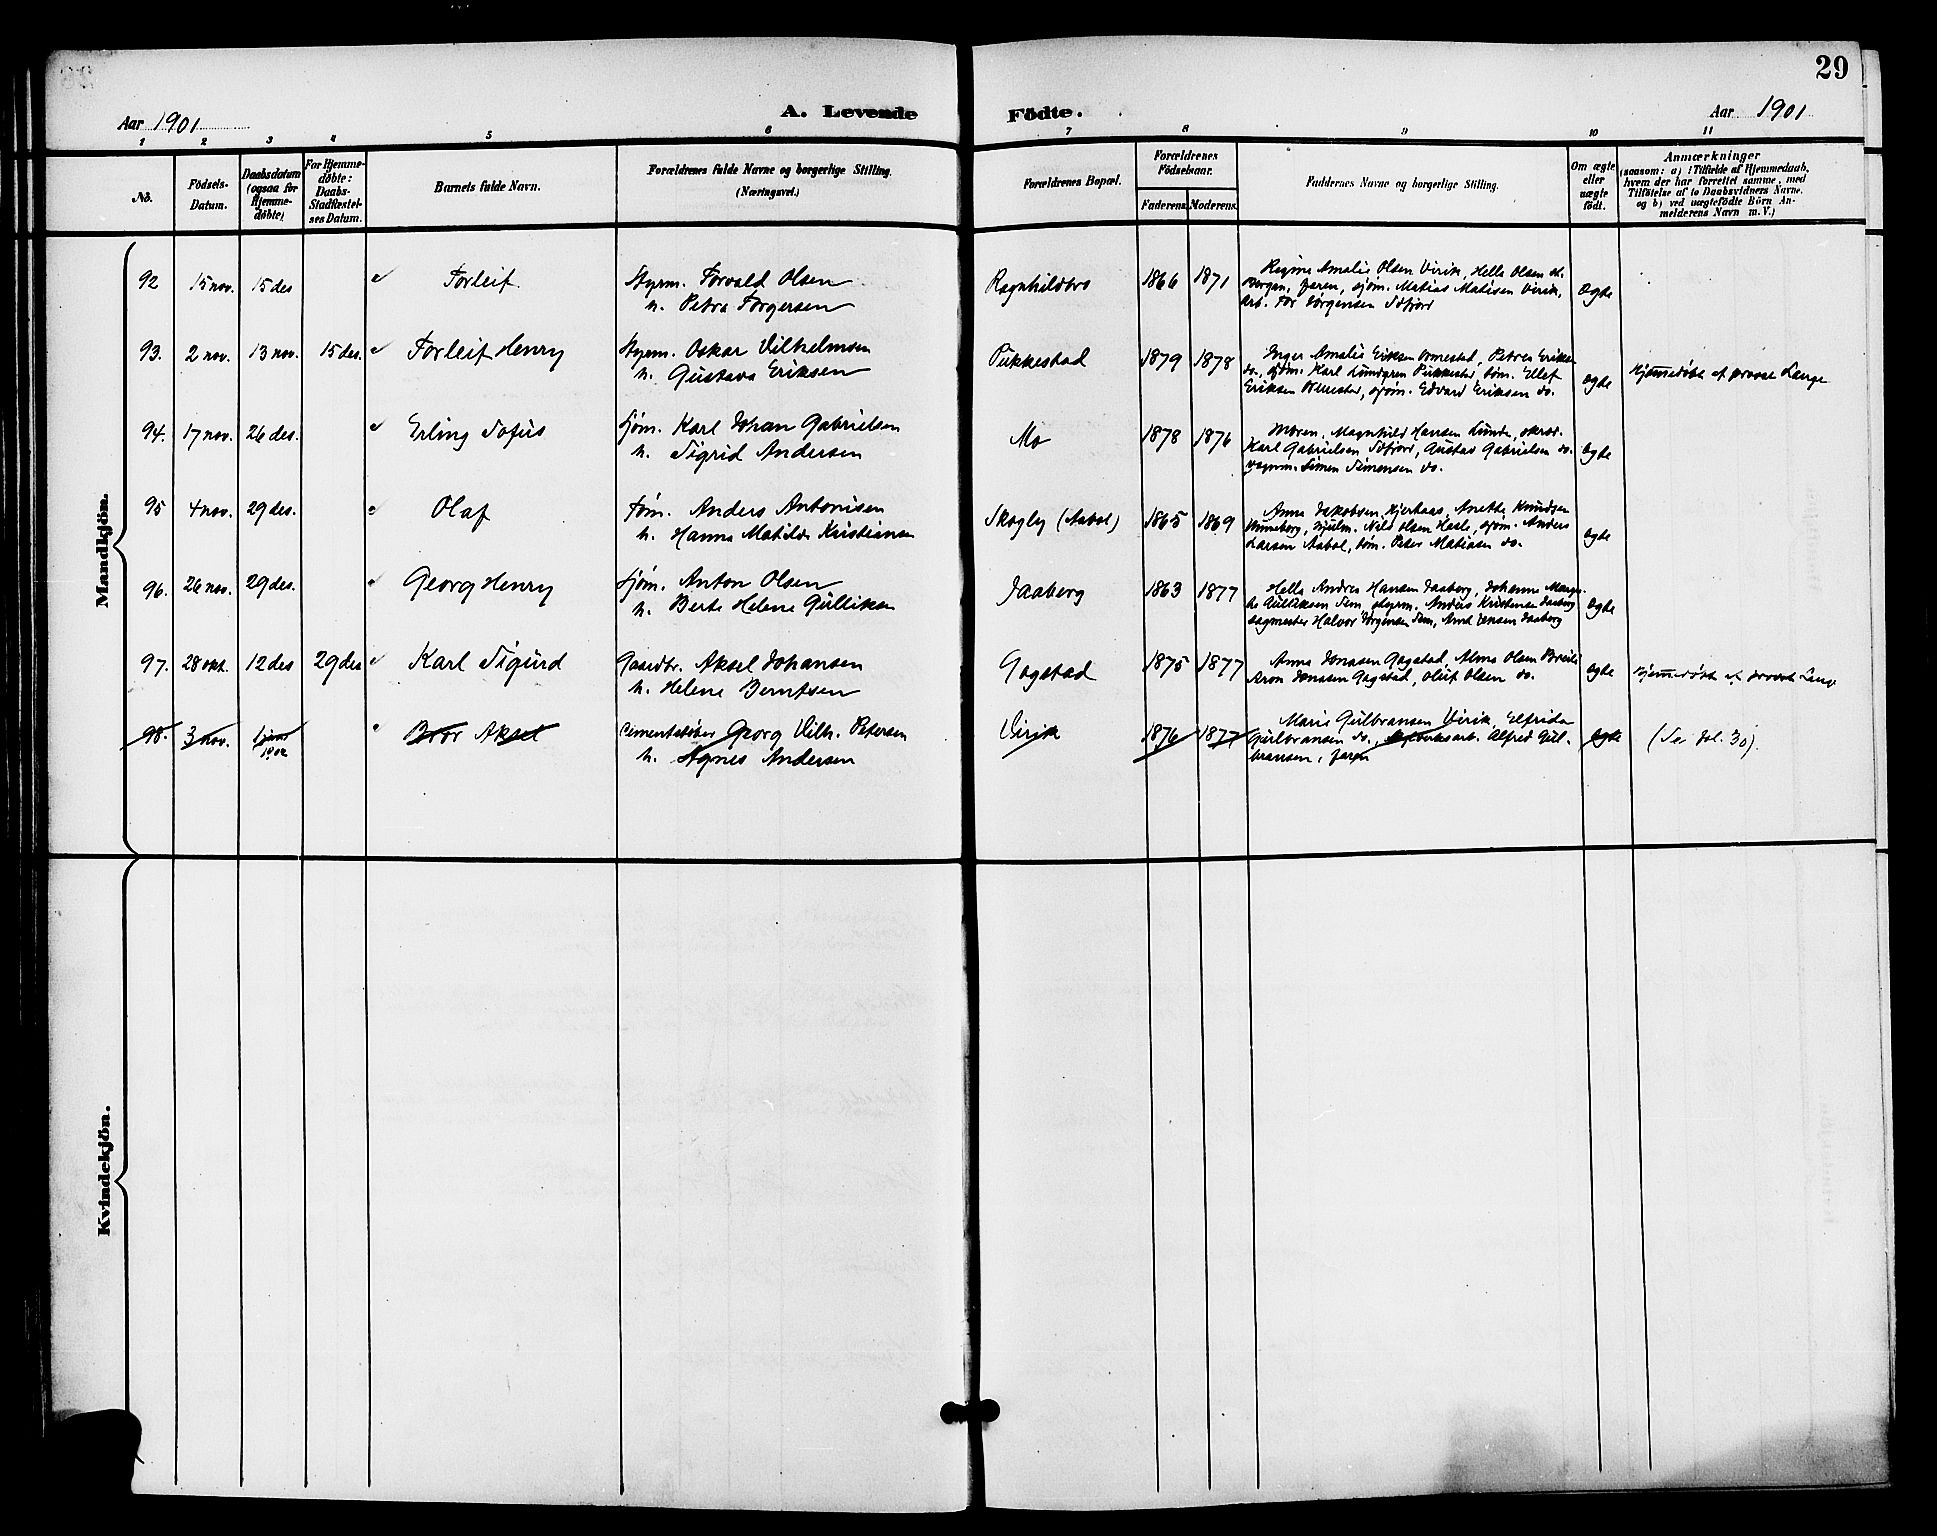 29
Aar 1901
A. Levende Födte.
Aar 1901
1 2 3 4 5 6 7 8 9 10 11
No.
Födsels-
Datum.
Daabsdatum
(ogsaa for
Hjemme-
döbte)
For Hjemme-
döbte:
Daabs-
Stadfæstel-
ses Datum.
Barnets fulde Navn.
Forældrenes fulde Navne og borgerlige Stilling.
(Næringsvei.)
Forældrenes Bopæl.
Forældrenes
Födselsaar.
Faderens. Moderens.
Faddernes Navne og borgerlige Stilling.
Om ægte
eller
uægte
födt.
Anmærkninger
(saasom: a) i Tilfælde af Hjemmedaab,
hvem der har forrettet samme, med
Tilföielse af to Daabsvidners Navne.
og b) ved uægtefödte Börn An-
melderens Navn m.V.)
Mandkjön.
92 15 nov. 15 des Torleif
Styrm. Torvald Olsen
h. Petra Torgersen
Ragnhildbro 1866 1871
Regine Amalie Olsen Virik, Helle Olsen
Bergan, faren, sjöm. Matias Matisen Virik,
arb. Jörgensen
ægte
93. 2 nov. 13 nov. 15 des. Torleif Henry
Styrm. Oskar Vilhelmsen
h. Gustava Eriksen
Pukkestad 1879 1878
Inger Amalie Eriksen Ormestad, Petrea Eriksen
do., sjöm. Karl Lundgren Pukkestad, töm. Ellef
Eriksen, sjöm. Edvard Eriksen do.
ægte
Hjemmedöbt af provst Lange
94. 17 nov. 26 des. Erling Sofus
Sjöm. Karl Johan Gabrielsen
h. Sigrid Andersen
Mo 1878 1876
Moren, Magnhild Hansen Lunde, skræd.
Karl Gabrielsen, Gustav Gabrielsen do.
vognm. Simen Simonsen do.
ægte
95 4 nov. 29 des. Olaf
Töm. Anders Antonisen
h. Hanna Matilde Kristiansen
Skogly (Aabol) 1865 1869
Anna Jakobsen, Anette Knudsen
hjulm. Nils Olsen Hasle, sjöm. Anders
Larsen Aabol, töm. Peter Matiasen do.
ægte
96. 26 nov. 29 des. Georg Henry
Sjöm. Anton Olsen
h. Berte Helene Gulliksen
Jaaberg 1863 1877
Helle Andrea Hansen Jaaberg, Johanne Margre-
te Gulliksen Sem, styrm. Anders Kristensen Jaaberg
sagmester Halvor Jörgensen Sem, Jensen Jaaberg
ægte
97. 28 okt. 12 des 29 des Karl Sigurd
Gaardbr. Aksel Johansen
h. Helene Berntsen
Gogstad 1875 1877
Anna Jonasen Gogstad, Alma Olsen
Aron Jonasen Gogstad, Oluf Olsen do.
ægte
Hjemmedöbt af provst Lange
98. 3 nov. 1 jan 1902 Bror Aksel
Cementstöber Georg Vilh. Petersen
h. Agnes Andersen
Virik 1876 1877
Marie Gulbransen Virik, Elfrida
Gulbransen do., Alfred Gul-
bransen, faren
ægte
(Se fol. 30).
Kvindekjön.